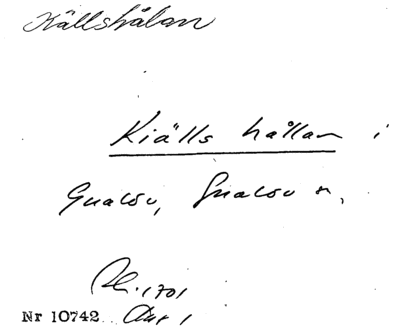 Källshålan
Kiälls hållan i
Gualöv, Gualöv sn,
1701
Nr 10742 Akt 1